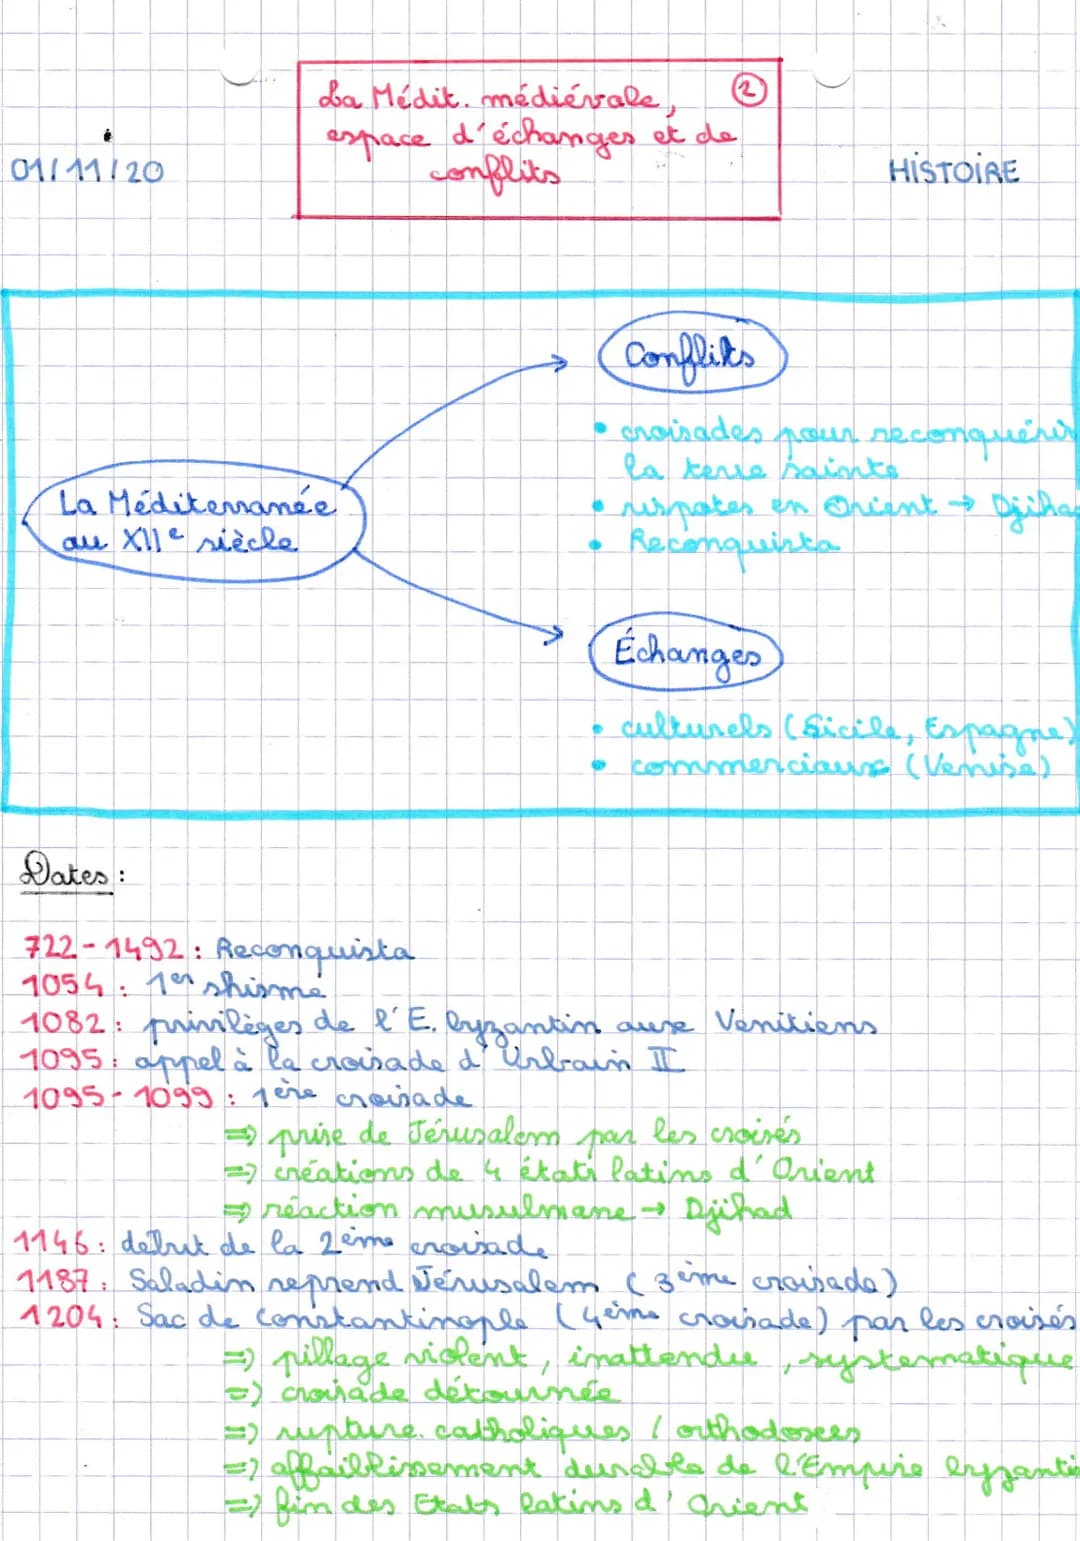 La Médit. médiévale, ②
espace d'échanges et de
conflits
01/11/20
HISTOIRE
Conflits
• croisades pour reconquérir
la terre sainte
• ripostes en Orient → Djiha
• Reconquista
La Méditerranée
au XIIe siècle
Échanges
• culturels (Sicile, Espagne)
• commerciaux (Venise)
Dates :
722-1492 : Reconquista
1054 : 1er shisme
1082 : privilèges de l'E. byzantin aux Vénitiens
1095 : appel à la croisade d'Urbain II
1095-1099 : 1ère croisade
=> prise de Jérusalem par les croisés
=> créations de 4 états latins d'Orient
=> réaction musulmane → Djihad
1146 : début de la 2ème croisade
1187 : Saladin reprend Jérusalem (3ème croisade)
1204 : Sac de Constantinople (4ème croisade) par les croisés
=> pillage violent, inattendu, systématique
=> croisade détournée
=> rupture catholiques / orthodoxes
=> affaiblissement durable de l'Empire byzanti
=> fin des Etats latins d'Orient